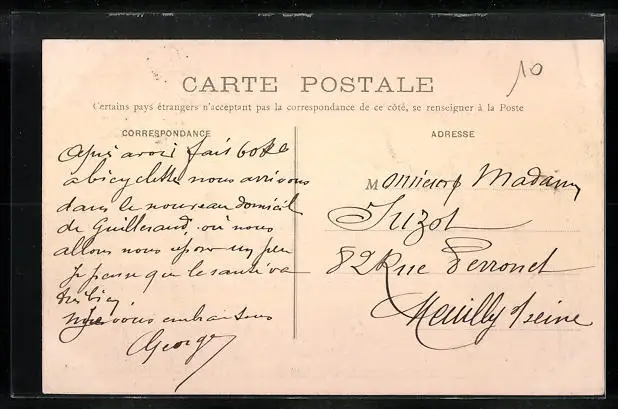 10
CARTE POSTALE
Certains pays étrangers n'acceptant pas la correspondance de ce côté, se renseigner à la Poste
CORRESPONDANCE
Apui avoir fait 60 Ke
a bicyclette nous arrivons
dans le nouveau domicil
de Guilleraud, où nous
allons nous un peu
Je pense que le santé va
très bien,
vous embrassons
George
ADRESSE
Monsieur Madam
Juzot
82 Rue Perronet
Neuilly s/ Seine